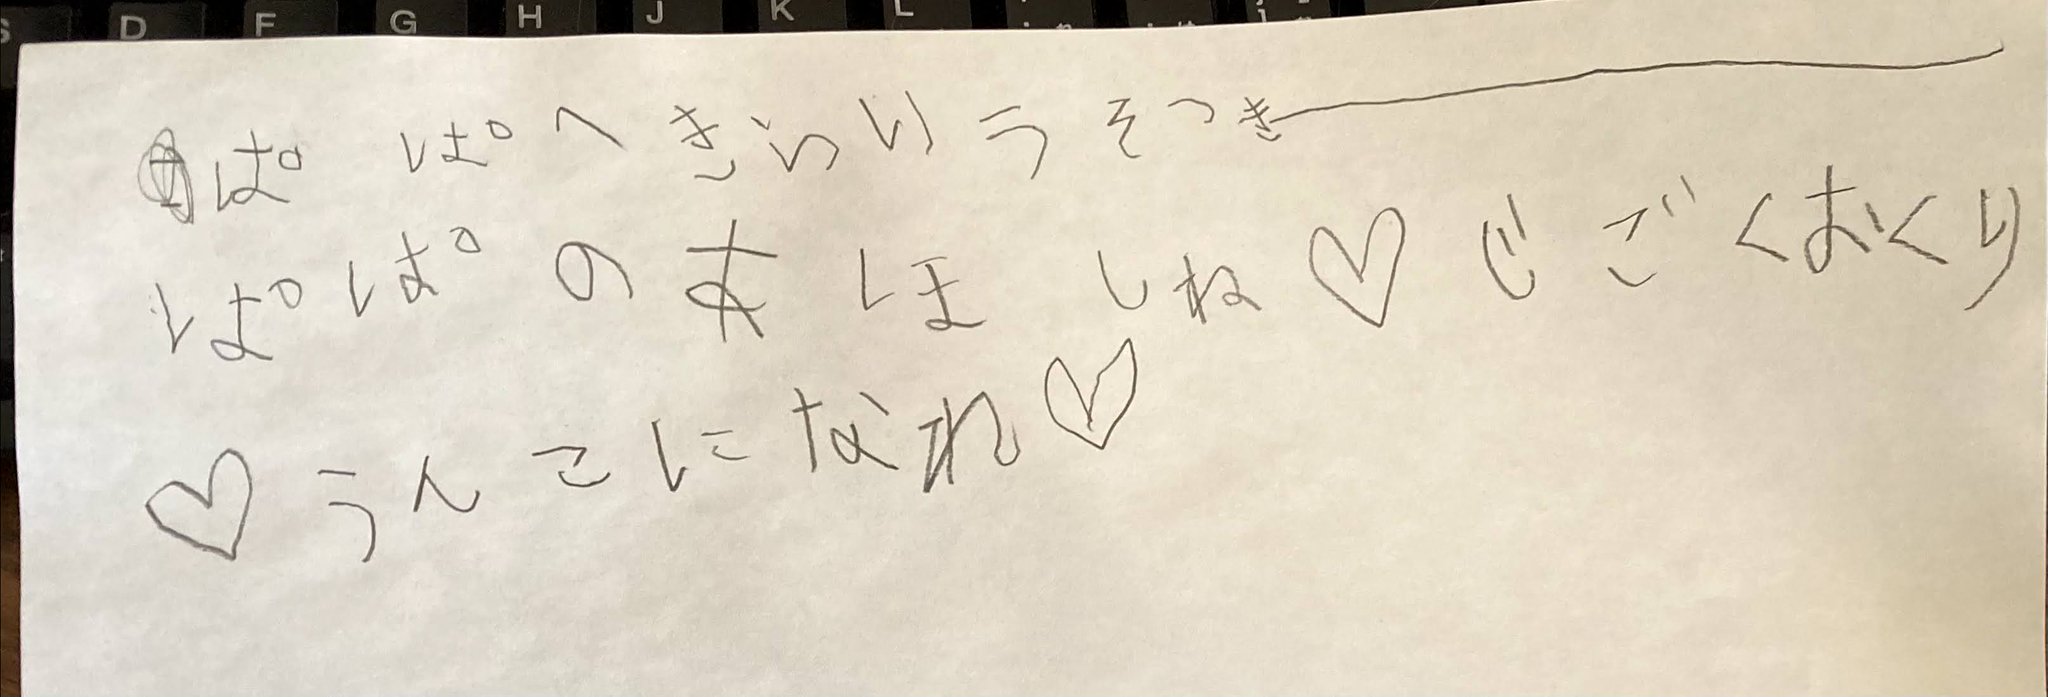 D F G H J K L
ぱぱへきらいうそつきー
ぱぱのあほしね♡じごくおくり
♡うんこになれ♡